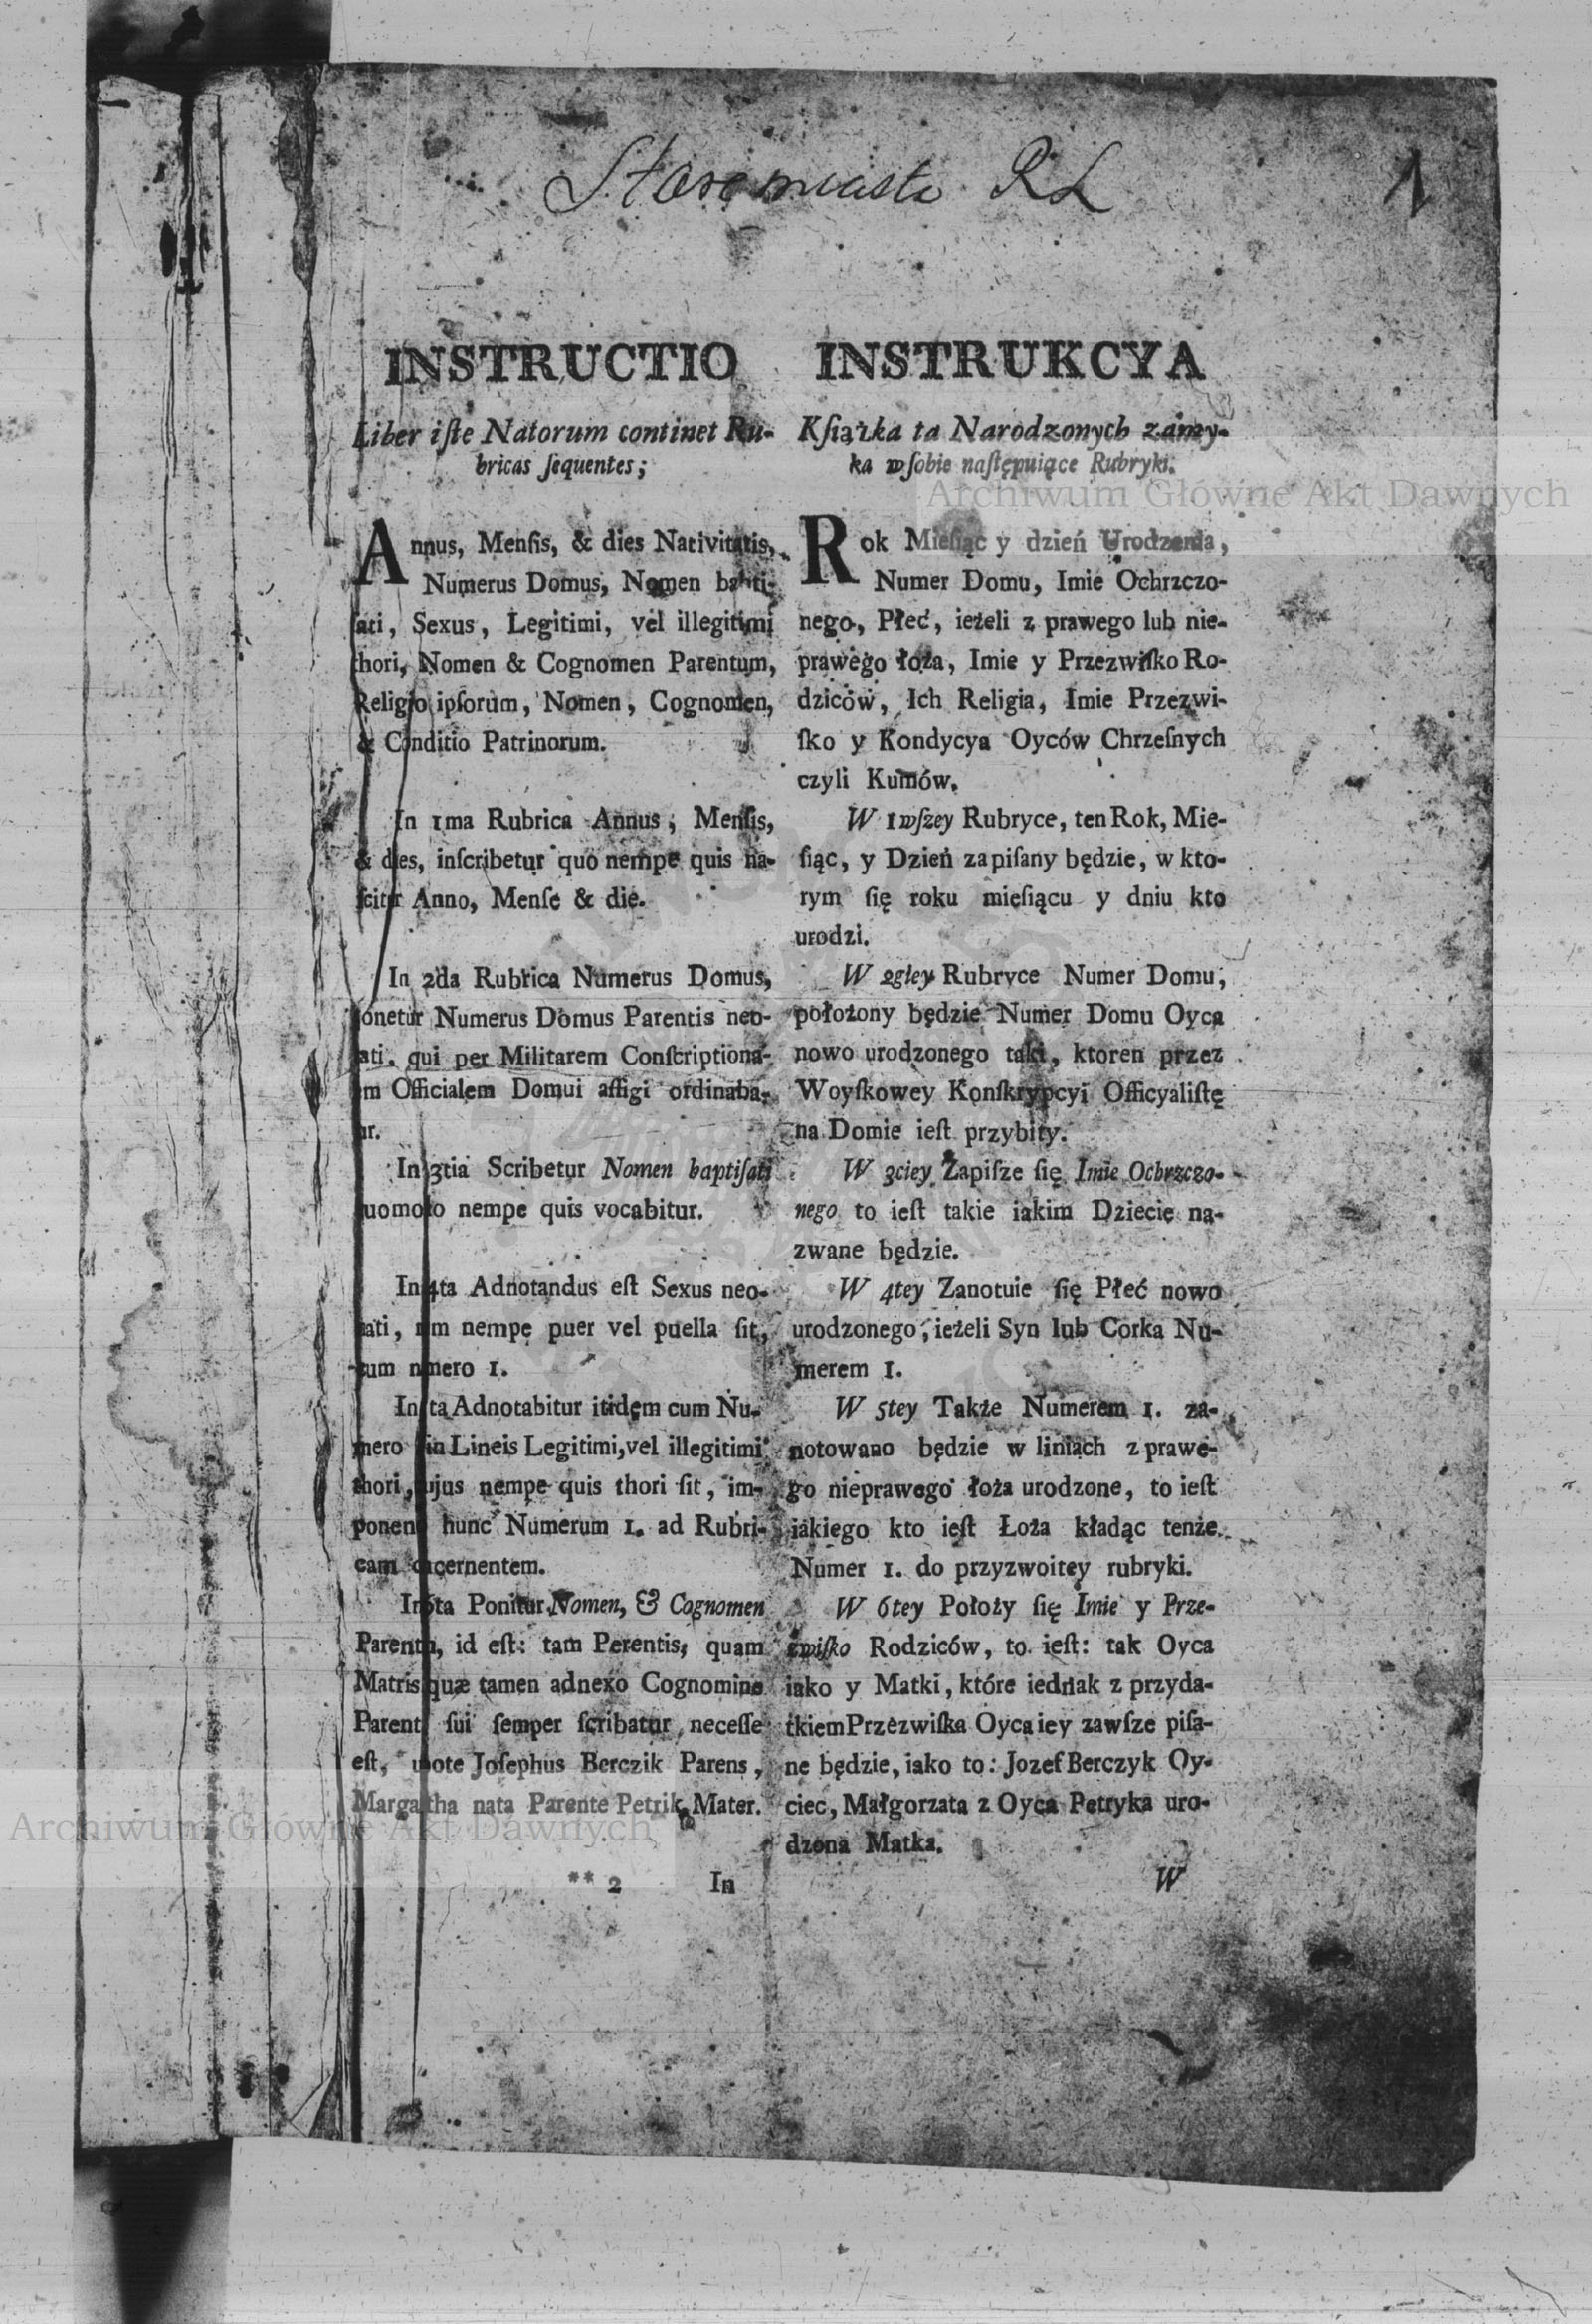 Staremiasto RL
1
INSTRUCTIO
Liber iſte Natorum continet Ru-
bricas ſequentes;
Annus, Menſis, & dies Nativitatis,
Numerus Domus, Nomen bapti-
ſati, Sexus, Legitimi, vel illegitimi
thori, Nomen & Cognomen Parentum,
Religio ipſorum, Nomen, Cognomen,
& Conditio Patrinorum.
In 1ma Rubrica Annus, Menſis,
& dies, inſcribetur quo nempe quis na-
ſcitur Anno, Menſe & die.
In 2da Rubrica Numerus Domus,
ponetur Numerus Domus Parentis neo-
nati, qui per Militarem Conſcriptiona-
em Officialem Domui affigi ordinaba-
ur.
In 3tia Scribetur Nomen baptiſati
quomodo nempe quis vocabitur.
In 4ta Adnotandus eſt Sexus neo-
nati, nempe puer vel puella ſit,
cum numero 1.
In ta Adnotabitur itidem cum Nu-
mero in Lineis Legitimi, vel illegitimi
thori, cujus nempe quis thori ſit, im-
ponen hunc Numerum 1. ad Rubri-
cam cernentem.
In 6ta Ponitur Nomen, & Cognomen
Parentu, id eſt: tam Perentis, quam
Matris quæ tamen adnexo Cognomine
Parent ſui ſemper ſcribatur neceſſe
eſt, upote Joſephus Berczik Parens,
Margaetha nata Parente Petrik Mater.
** 2 In
INSTRUKCYA
Kſiążka ta Narodzonych zamy-
ka wſobie naſtępuiące Rubryki.
Rok Mieſiąc y dzień Urodzenia,
Numer Domu, Imie Ochrzczo-
nego, Płeć, ieżeli z prawego lub nie-
prawego łoża, Imie y Przezwiſko Ro-
dziców, Ich Religia, Imie Przezwi-
ſko y Kondycya Oyców Chrzeſnych
czyli Kumów.
W 1wſzey Rubryce, ten Rok, Mie-
ſiąc, y Dzień zapiſany będzie, w kto-
rym ſię roku mieſiącu y dniu kto
urodzi.
W 2gley Rubryce Numer Domu,
położony będzie Numer Domu Oyca
nowo urodzonego taki, ktoren przez
Woyſkowey Konſkrypcyi Officyaliſtę
na Domie ieſt przybity.
W 3ciey Zapiſze ſię Imie Ochrzczo-
nego to ieſt takie iakim Dziecie na-
zwane będzie.
W 4tey Zanotuie ſię Płeć nowo
urodzonego, ieżeli Syn lub Corka Nu-
merem 1.
W 5tey Także Numerem 1. za-
notowano będzie w liniach z prawe-
go nieprawego łoża urodzone, to ieſt
iakiego kto ieſt Łoża kładąc tenże
Numer 1. do przyzwoitey rubryki.
W 6tey Położy ſię Imie y Prze-
zwiſko Rodziców, to ieſt: tak Oyca
iako y Matki, które iednak z przyda-
tkiem Przezwiſka Oyca iey zawſze piſa-
ne będzie, iako to: Jozef Berczyk Oy-
ciec, Małgorzata z Oyca Petryka uro-
dzona Matka.
W
Archiwum Główne Akt Dawnych
Archiwum Główne Akt Dawnych